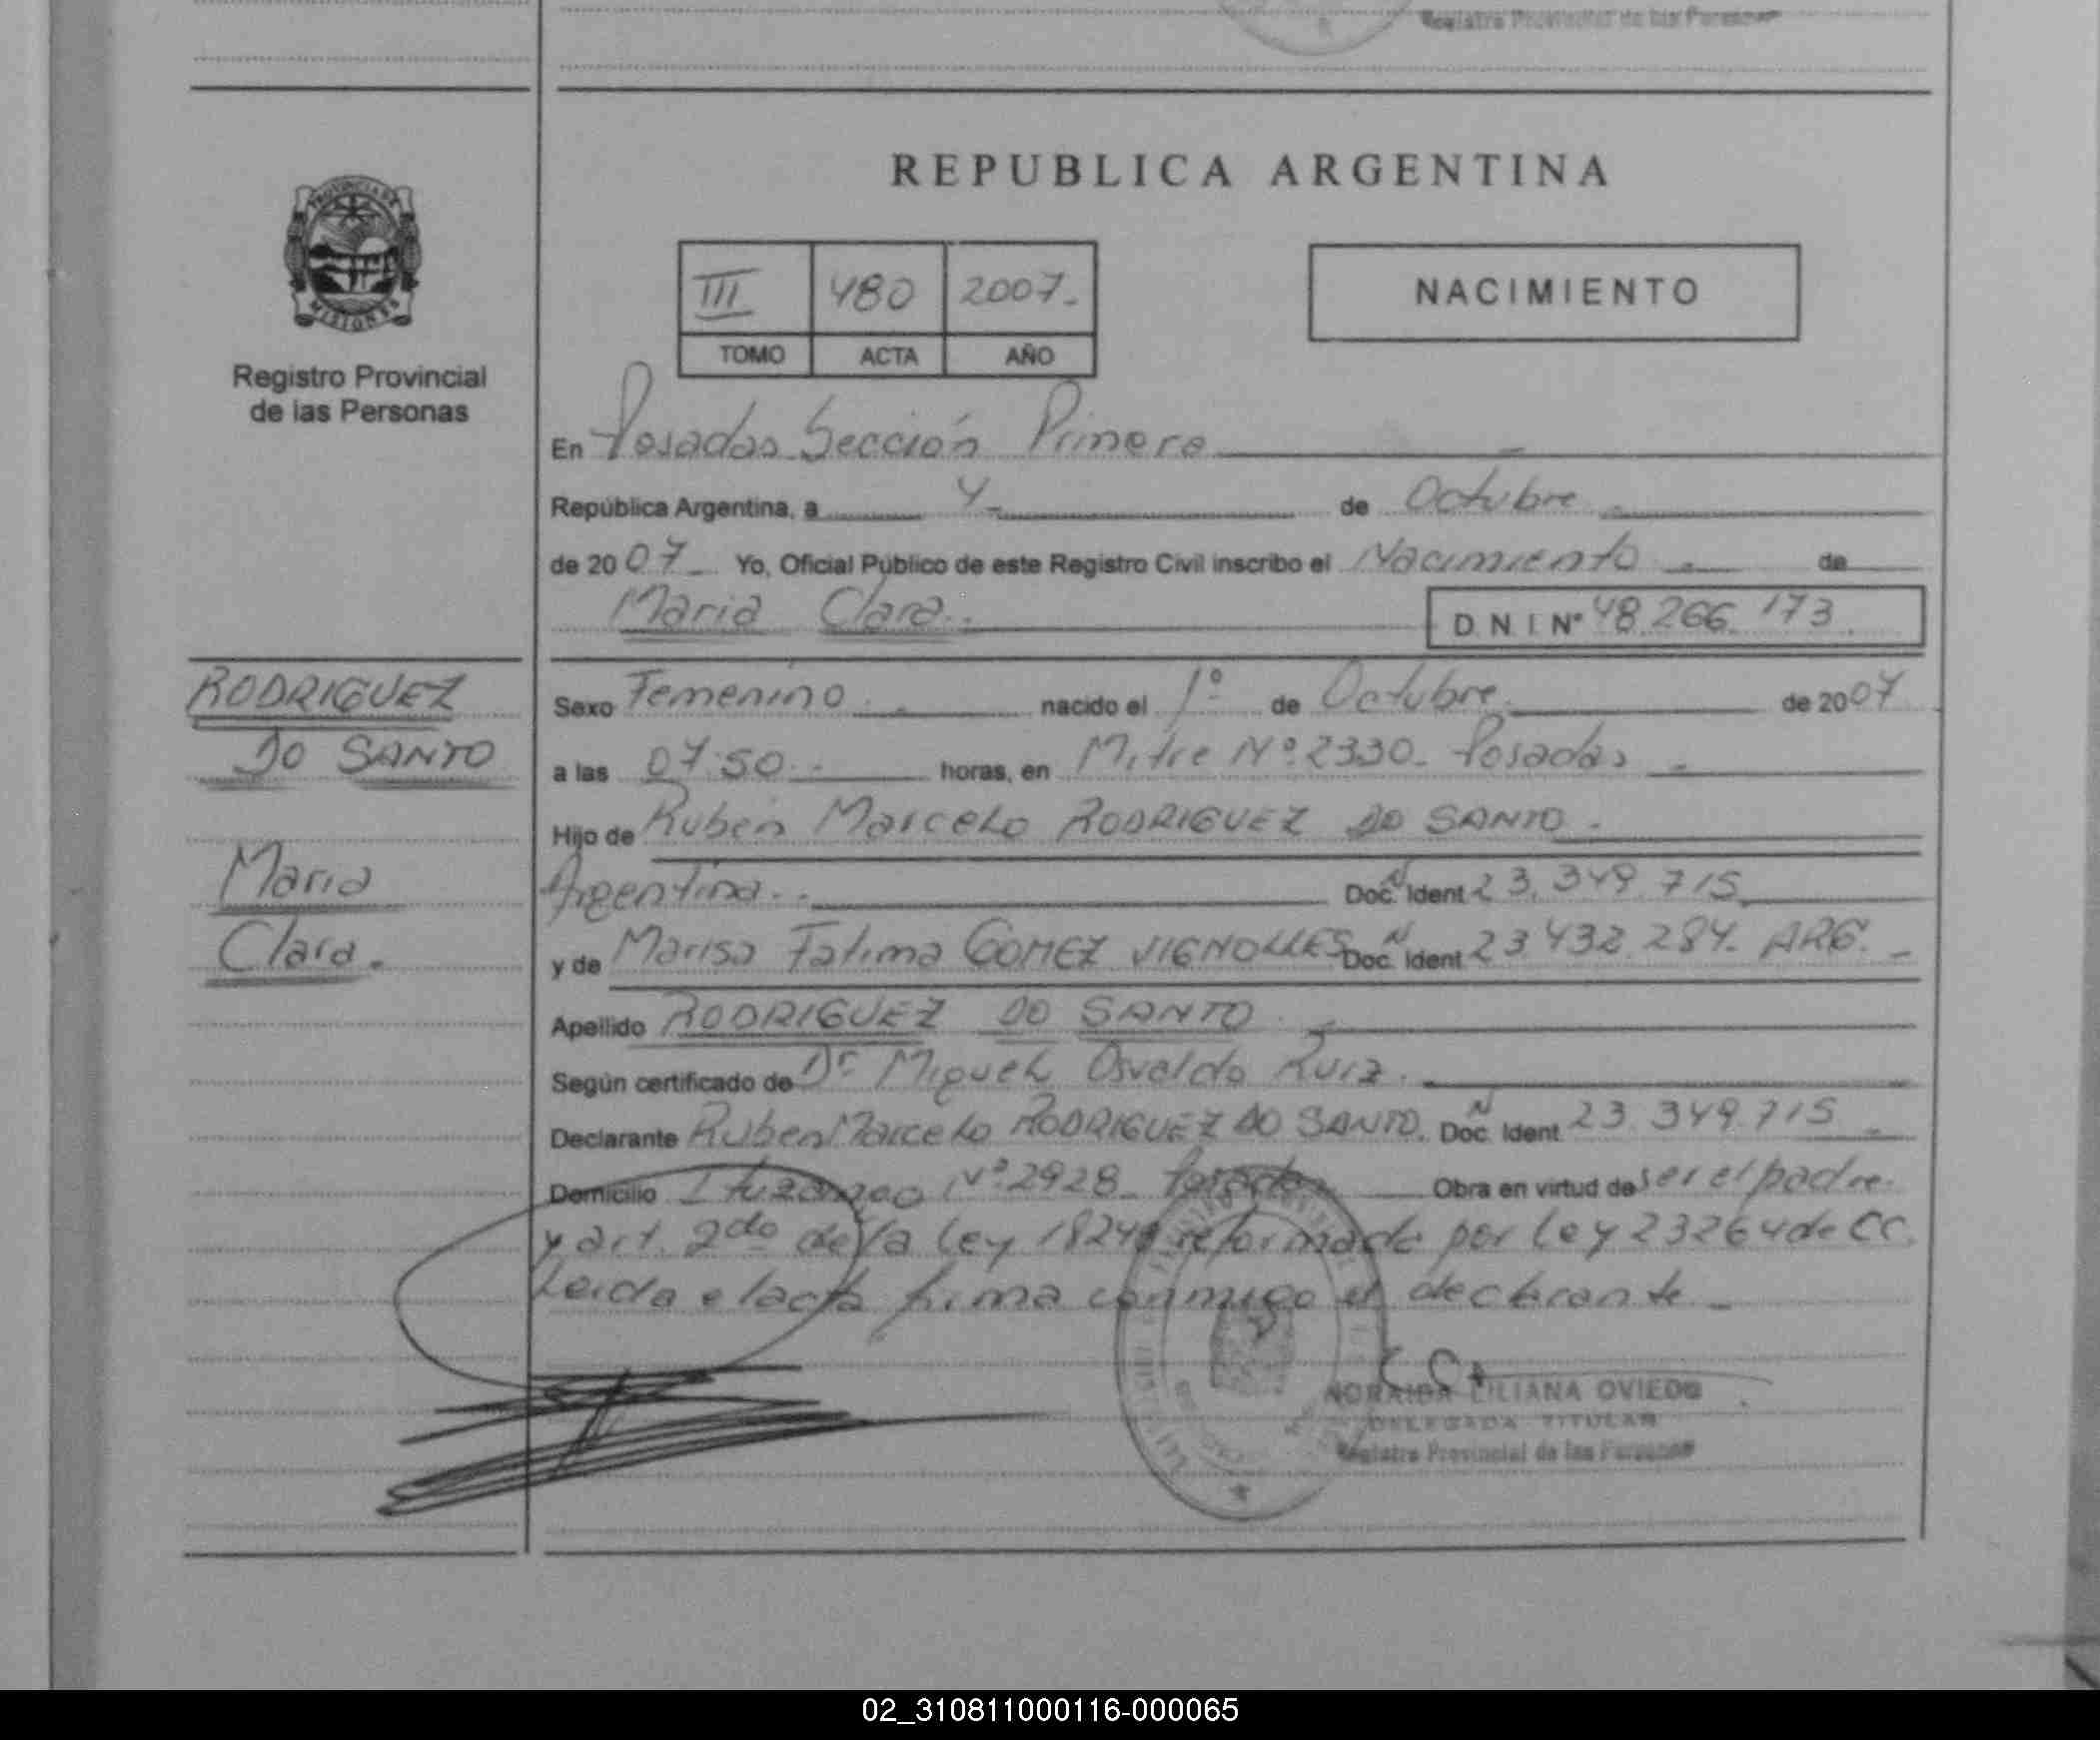 Registro Provincial de las Personas
PROVINCIA DE
MISIONES
Registro Provincial
de las Personas
RODRIGUEZ
DO SANTO
Maria
Clara.
REPUBLICA ARGENTINA
III 480 2007.
TOMO ACTA AÑO
NACIMIENTO
En Posadas Sección Primera
República Argentina, a 4 de Octubre
de 2007 Yo, Oficial Público de este Registro Civil inscribo el Nacimiento de
Maria Clara. D N I Nº 48.266.173.
Sexo Femenino. nacido el 1º de Octubre de 2007
a las 07:50 horas, en Mitre Nº 2330 - Posadas
Hijo de Ruben Marcelo RODRIGUEZ DO SANTO
Argentina. Doc. N Ident 23.349.715
y de Marisa Fatima GOMEZ VIGNOLLES Doc. N Ident 23.432.284. ARG.
Apellido RODRIGUEZ DO SANTO
Según certificado de Dr Miguel Osvaldo Ruiz.
Declarante Ruben Marcelo RODRIGUEZ DO SANTO. Doc. N Ident 23.349.715
Domicilio Ituzaingo Nº 2928 - Posadas Obra en virtud de ser el padre
y art. 2do de la ley 18248 reformada por ley 23264 de CC.
Leida el acta firma conmigo el declarante
NORAIDA LILIANA OVIEDO
DELEGADA TITULAR
Registro Provincial de las Personas
02_310811000116-000065